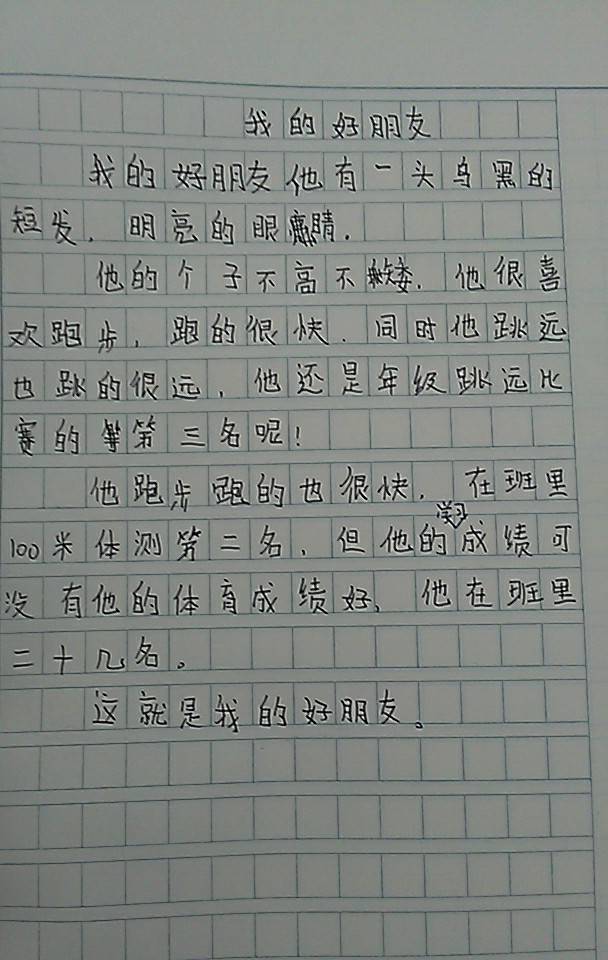 我的好朋友
我的好朋友他有一头乌黑的
短发，明亮的眼睛．
他的个子不高不矮．他很喜
欢跑步，跑的很快．同时他跳远
也跳的很远，他还是年级跳远比
赛的第三名呢！
他跑步跑的也很快，在班里
100米体测第二名，但他的学习成绩可
没有他的体育成绩好、他在班里
二十几名。
这就是我的好朋友。